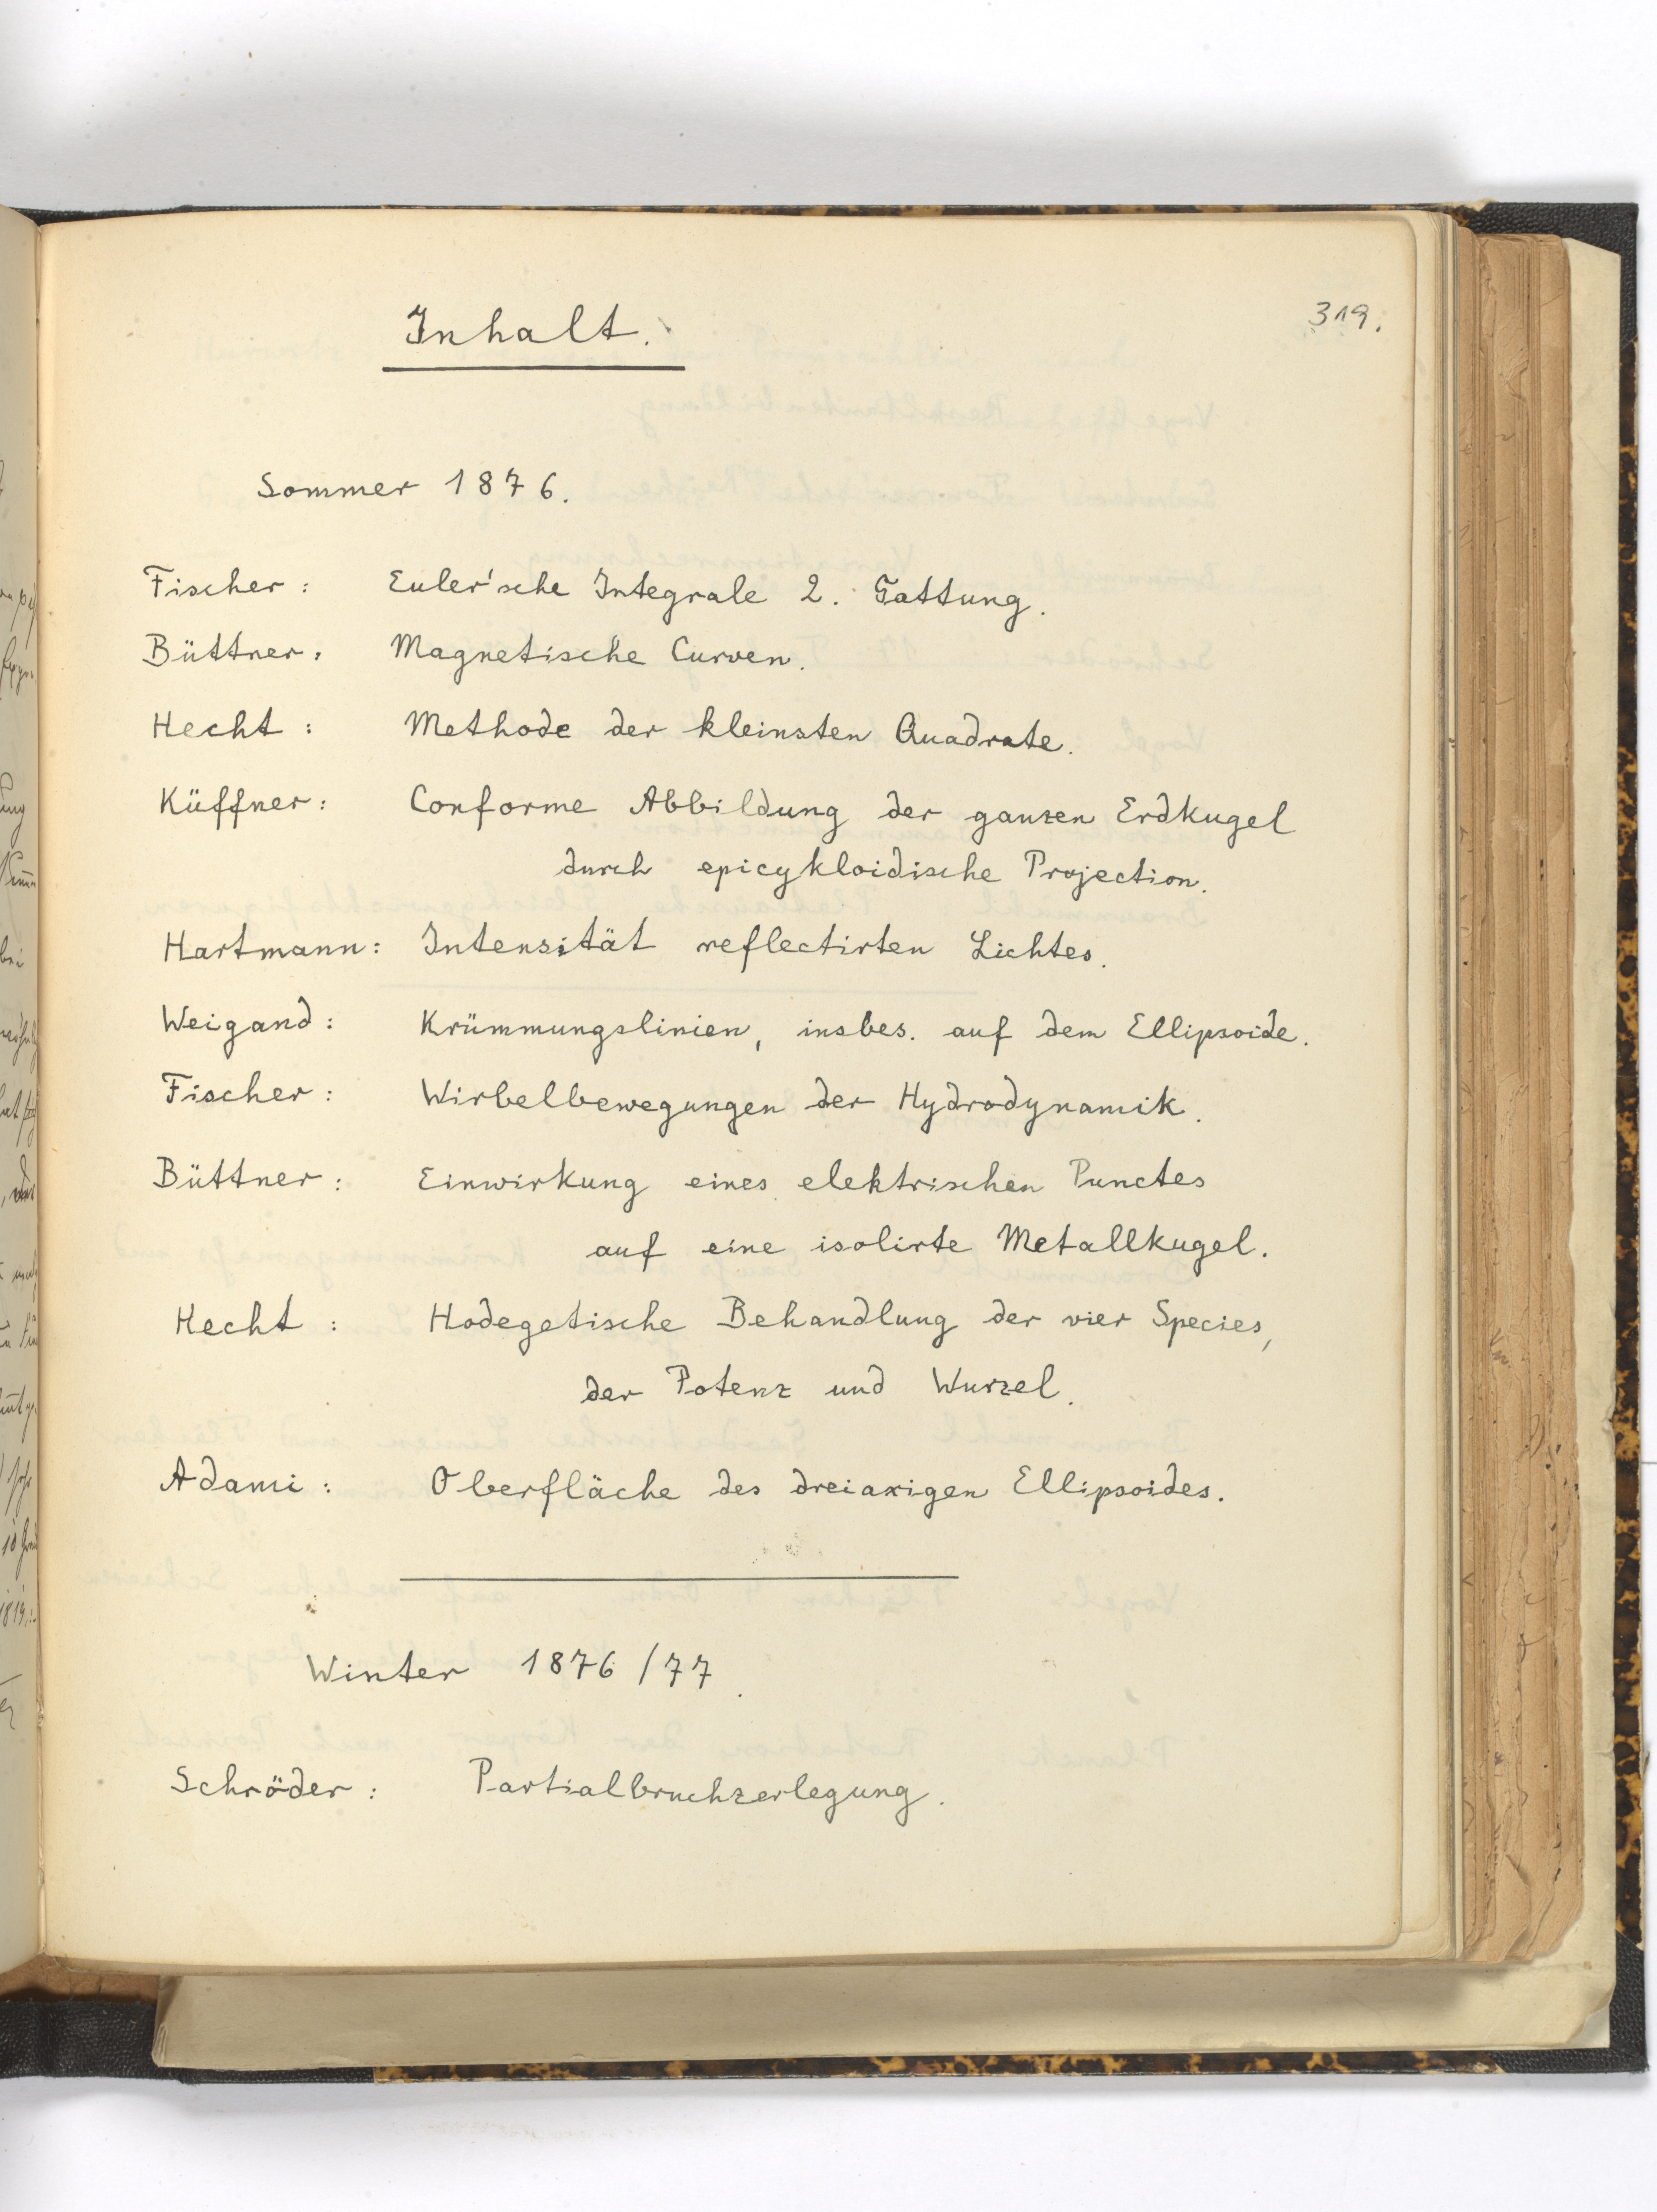 319.
Inhalt.
Sommer 1876.
Fischer: Euler'sche Integrale 2. Gattung.
Büttner: Magnetische Curven.
Hecht: Methode der kleinsten Quadrate.
Küffner: Conforme Abbildung der ganzen Erdkugel
durch epicykloidische Projection.
Hartmann: Intensität reflectirten Lichtes.
Weigand: Krümmungslinien, insbes. auf dem Ellipsoide.
Fischer: Wirbelbewegungen der Hydrodynamik.
Büttner: Einwirkung eines elektrischen Punctes
auf eine isolirte Metallkugel.
Hecht: Hodegetische Behandlung der vier Species,
der Potenz und Wurzel.
Adami: Oberfläche des dreiaxigen Ellipsoides.
Winter 1876/77.
Schröder: Partialbruchzerlegung.